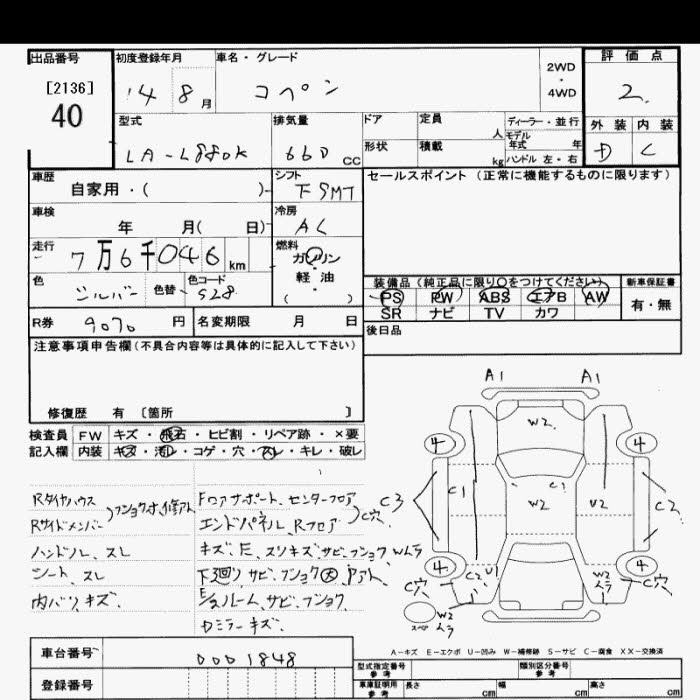 出品番号
[2136]
40
初度登録年月
14 8 月
車名・グレード
コペン
2WD
・
4WD
評価点
2.
型式
LA-L880K
排気量
660 CC
ドア
定員
人
ディーラー・並行
モデル
年式 年
形状
積載
kg
ハンドル 左・右
外装 内装
D C
車歴
自家用・( )
シフト
F5MT
セールスポイント (正常に機能するものに限ります)
車検
年 月( 日)
冷房
AC
走行
7万6千046 km
燃料
ガソリン
・
軽油
( )
色
シルバー
色替
色コード
S28
装備品(純正品に限り○をつけてください)
新車保証書
PS PW ABS エアB AW
有・無
SR ナビ TV カワ
R券
9070 円
名変期限 月 日
後日品
注意事項申告欄(不具合内容等は具体的に記入して下さい)
修復歴 有 〔箇所 〕
検査員
記入欄
FW キズ・飛石・ヒビ割・リペア跡・×要
内装 キズ・汚レ・コゲ・穴・スレ・キレ・破レ
Rタイヤハウス
Rサイドメンバー
ハンドル、スレ
シート、スレ
内バリ、キズ、
Fロアサポート、センターフロア
エンドパネル、Rフロア
C穴
下廻り サビ、フショク大
E/ルーム、サビ、フショク
Dミラーキズ、
A1 A1
W2
4 4
C3 C1 W2 C1 U2 C2
4 4
C穴 C2 U1 W2 ムラ C穴
スペア W2 ムラ
A-キズ E-エクボ U-凹み W-補修跡 S-サビ C-腐食 XX-交換済
車台番号
0001848
登録番号
型式指定番号
参考
類別区分番号
参考
車庫証明用
参考
長さ cm 幅 cm 高さ cm